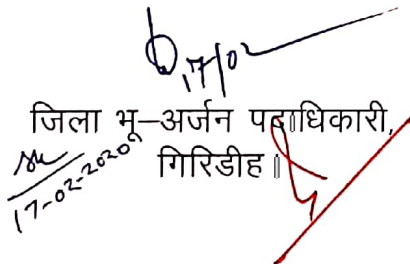 17/02
जिला भू–अर्जन पदाधिकारी,
गिरिडीह।
17-02-2020